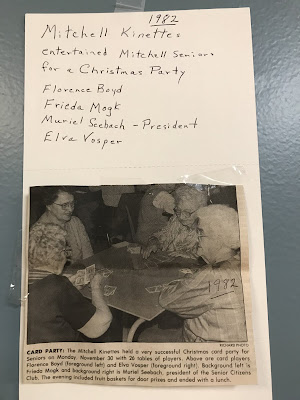 1982
Mitchell Kinettes
entertained Mitchell Seniors
for a Christmas Party
Florence Boyd
Frieda Mogk
Muriel Seebach - President
Elva Vosper
1982
RICHARD PHOTO
CARD PARTY: The Mitchell Kinettes held a very successful Christmas card party for
Seniors on Monday, November 30 with 26 tables of players. Above are card players
Florence Boyd (foreground left) and Elva Vosper (foreground right). Background left is
Frieda Mogk and background right is Muriel Seebach, president of the Senior Citizens
Club. The evening included fruit baskets for door prizes and ended with a lunch.